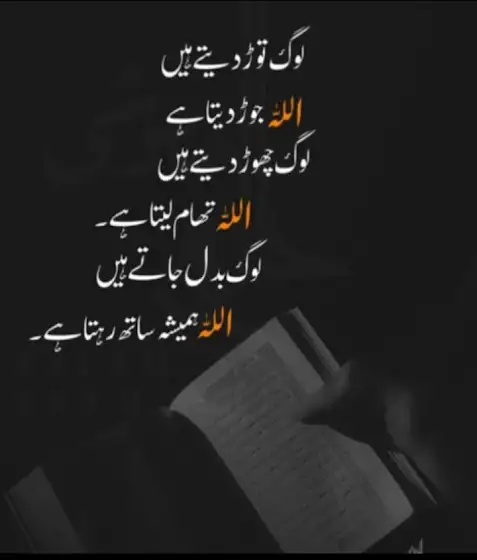 لوگ توڑ دیتے ہیں
اللہ جوڑ دیتا ہے
لوگ چھوڑ دیتے ہیں
اللہ تھام لیتا ہے۔
لوگ بدل جاتے ہیں
اللہ ہمیشہ ساتھ رہتا ہے۔